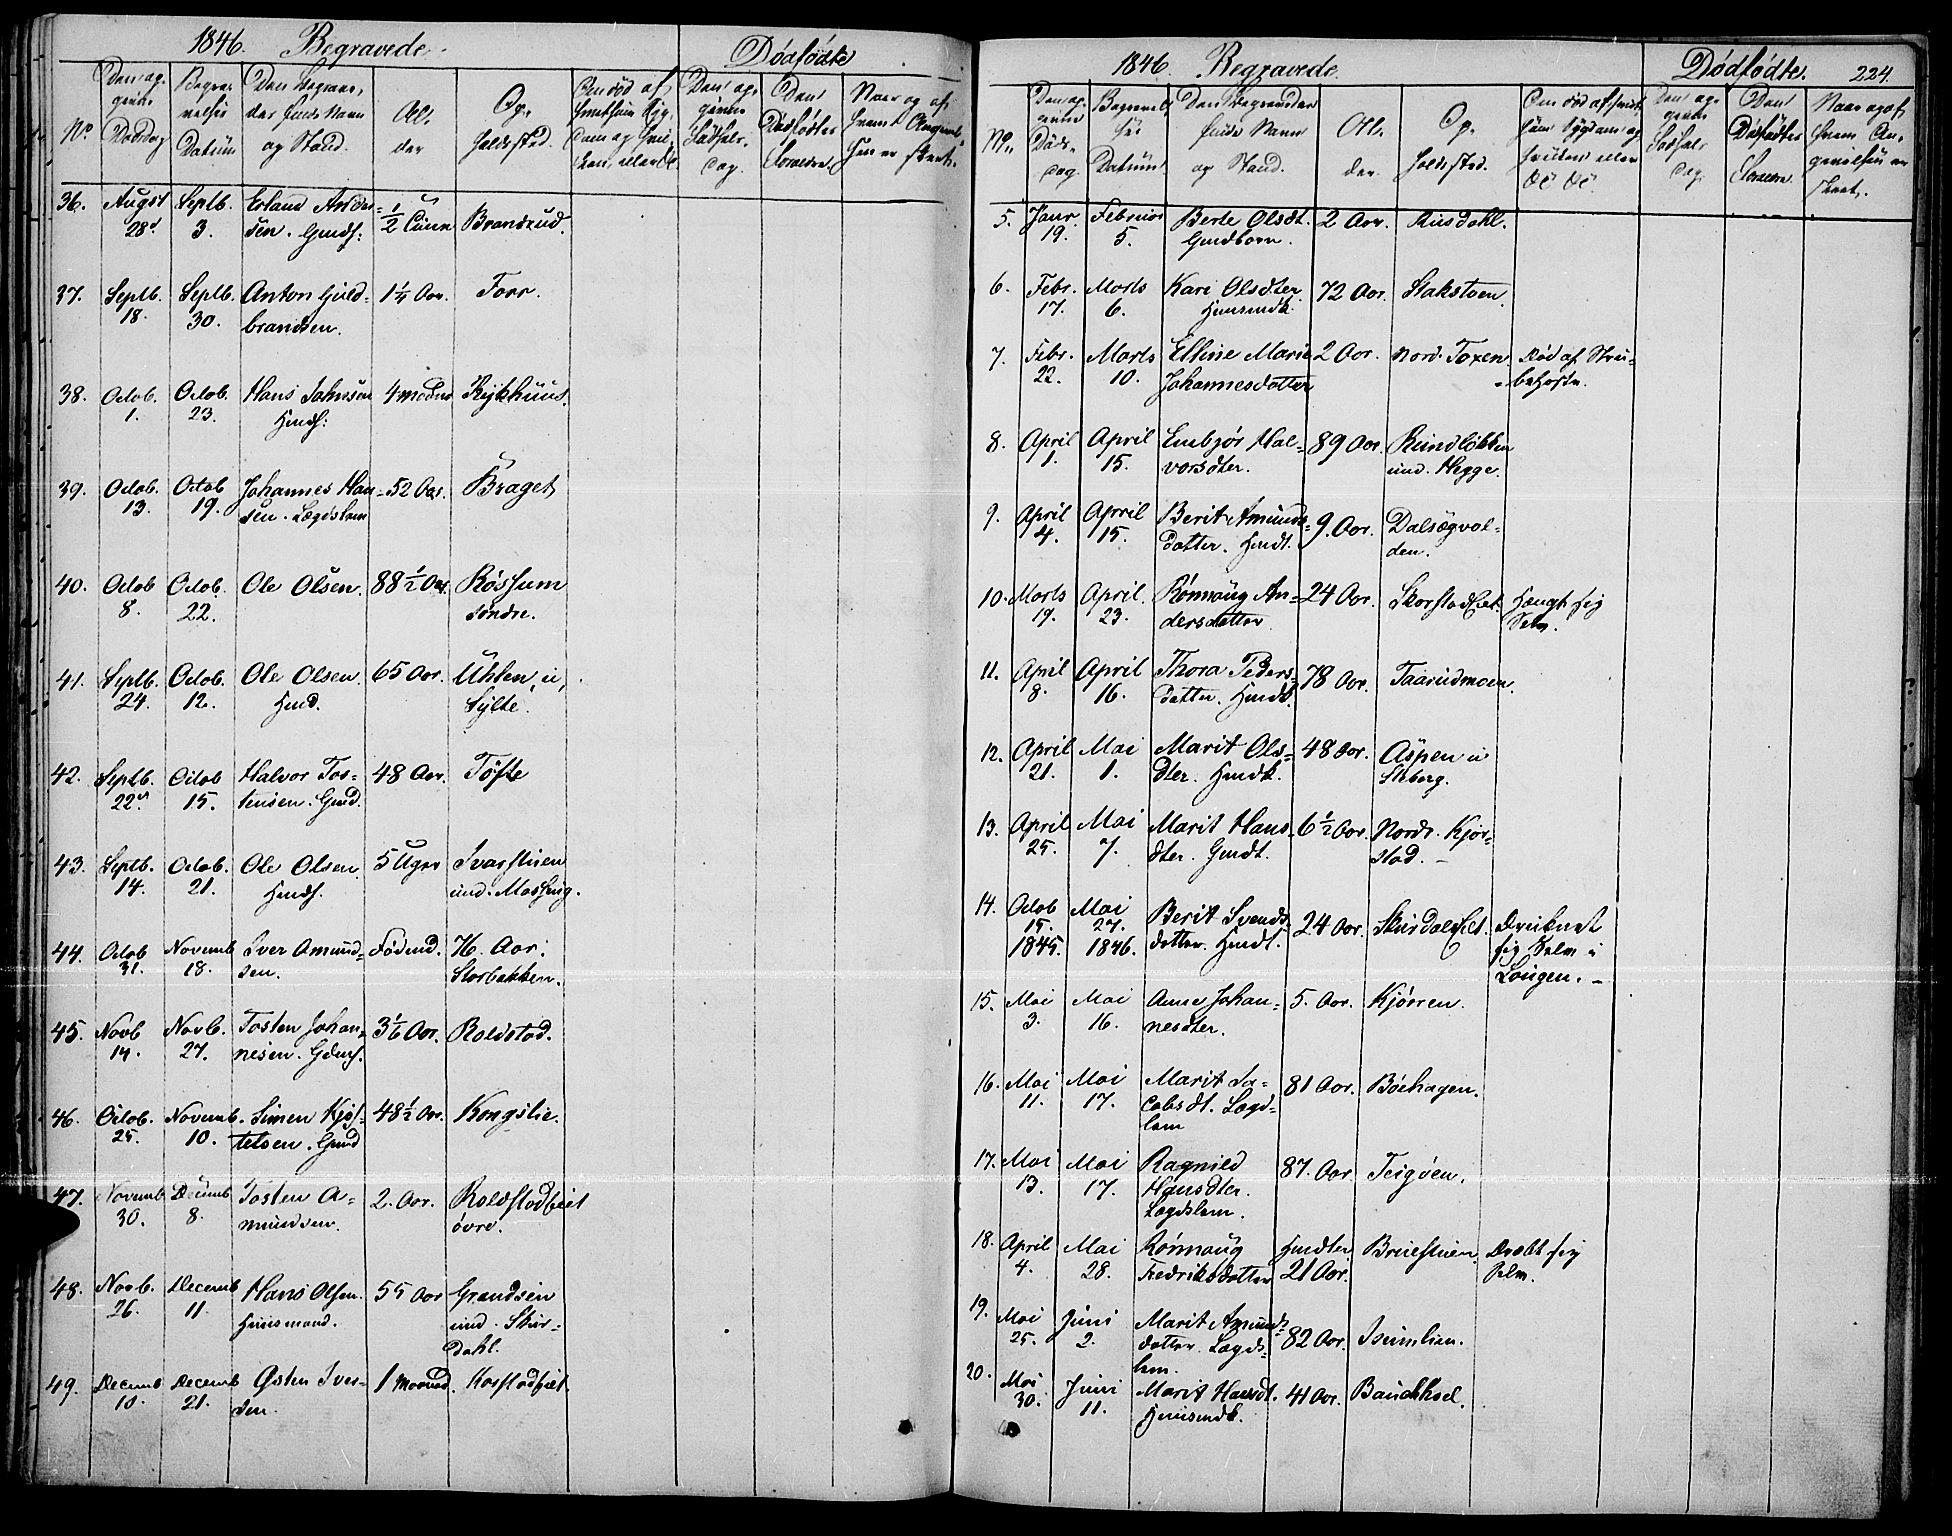 1846. Begravede.
Dødfødte
No
Den an-
givne
Dødsdag
Begra-
velses
Datum
Den Begrave-
des fulde Navn
og Stand.
Al-
der
Op-
holdssted.
Den an-
givne
Dødsfalds-
dag.
Den
Dødfødtes
Forældre.
36. Augst 28de Septb. 3. Erland Ander-
sen. Gmds: 1/2 Time Brandrud.
37. Septb. 18. Septb. 30. Anton Guld-
brandsen. 1 1/4 Aar. Forr.
38. Octob. 1. Octob. 23. Hans Johnsen
Hmds: 4 Rykhuus.
39. Octob. 13. Octob 19. Johannes Han-
sen. Lægdslem 52 Aar. Braget
40. Octob 8. Octob. 22. Ole Olsen. 88 1/2 Aar. Røssum
søndre.
41. Septb. 24. Octob. 12. Ole Olsen
Hmd. 65 Aar. Uhlen, u,
Sylte.
42. Septb. 22. Octob 15. Halvor Tos-
tensen. Gmd. 48 Aar. Tofte
43. Septb. 14. Octob. 21. Ole Olsen
Hmds. 5 Uger Ivarstuen
und.
44. Octob 31. Novemb 18. Iver Amund-
sen. H. Aar:
Storbakken.
45. Novb 14. Novb. 27. Tosten Johan-
nesen. 3 1/6 Aar. Roldstad.
46. Octob. 25. Novemb. 10. Simen Kjøs-
telsen. Gmd 48 1/2 Aar. Kongslie.
47. Novemb 30. Decemb 8. Tosten A-
mundsen. 2. Aar. Roldstadeiet
øvre.
48. Novb. 26. Decemb 11. Hans Olsen.
Huusmand. 55 Aar Grandsen
und. Skur-
dahl.
49. Decemb 10. Decemb 21. Østen Iver-
sen. 1 Maaned. Korstadeiet
1846. Begravede.
Dødfødte. 224.
No.
Den an-
givne
Døds-
dag
Begravel-
ses
Datum
Den Begravedes
fulde Navn
og Stand.
Al-
der.
Op-
holdssted.
Den
Dødfødtes
Forældre.
5. Janr. 19. Februar 5. Berte Olsdt.
Gmdbarn. 2 Aar. Ruisdahl.
6. Febr. 17. Marts 6. Kari Olsdter
Huusmdk. 72 Aar. Stakstuen.
7. Febr. 22. Marts 10. Elline Marie
Johannesdatter 2 Aar. Nord. Toxen Død af Stru-
behoste.
8. April 1. April 15. Embjør Hal-
vorsdter. 89 Aar. Rundløkken
und. Hegge.
9. April 4. April 15. Berit Amunds-
datter. Hmdt. 9. Aar. Dalsegval-
den.
10. Marts 19. April. 23. Rønnaug An-
dersdatter 24 Aar. Skorstadeiet. Hængt sig
Selv.
11. April 8. April 16. Thora Peders-
datter. Hmdk. 78 Aar. Taarudmoen.
12. April 21. Mai 1. Marit Ols-
dter. Hmdk. 48 Aar. Aspen u
Steberg.
13. April 25. Mai 7. Marit Hans-
dter. Gmdt. 6 1/2 Aar. Nordr. Kjør-
stad. –
14. Octob 15. 1845. Mai 27. 1846. Berit Svends-
datter. Hmdt. 24 Aar. Skurdalseiet. Druknet
sig Selv i
Lougen. –
15. Mai 3. Mai 16. Anne Johan-
nesdter. 5. Aar. Kjørren.
16. Mai 11. Mai 17. Marit Ja-
cobsdt. Lægds-
lem 81 Aar. Bøehagen.
17. Mai 13. Mai 17. Ragnild
Hansdter.
Lægdslem. 87. Aar. Teigøen.
18. April 4. Mai 28. Rønnaug
Fredriksdatter Hmdter
21 Aar. Bruestuen. Dræbt sig
Selv.
19. Mai 25. Juni 2. Marit Amunds-
datter. Lægds-
lem. 82 Aar. Isumlien.
20. Mai 30. Juni 11. Marit Hansdt.
Huusmdk. 41 Aar.